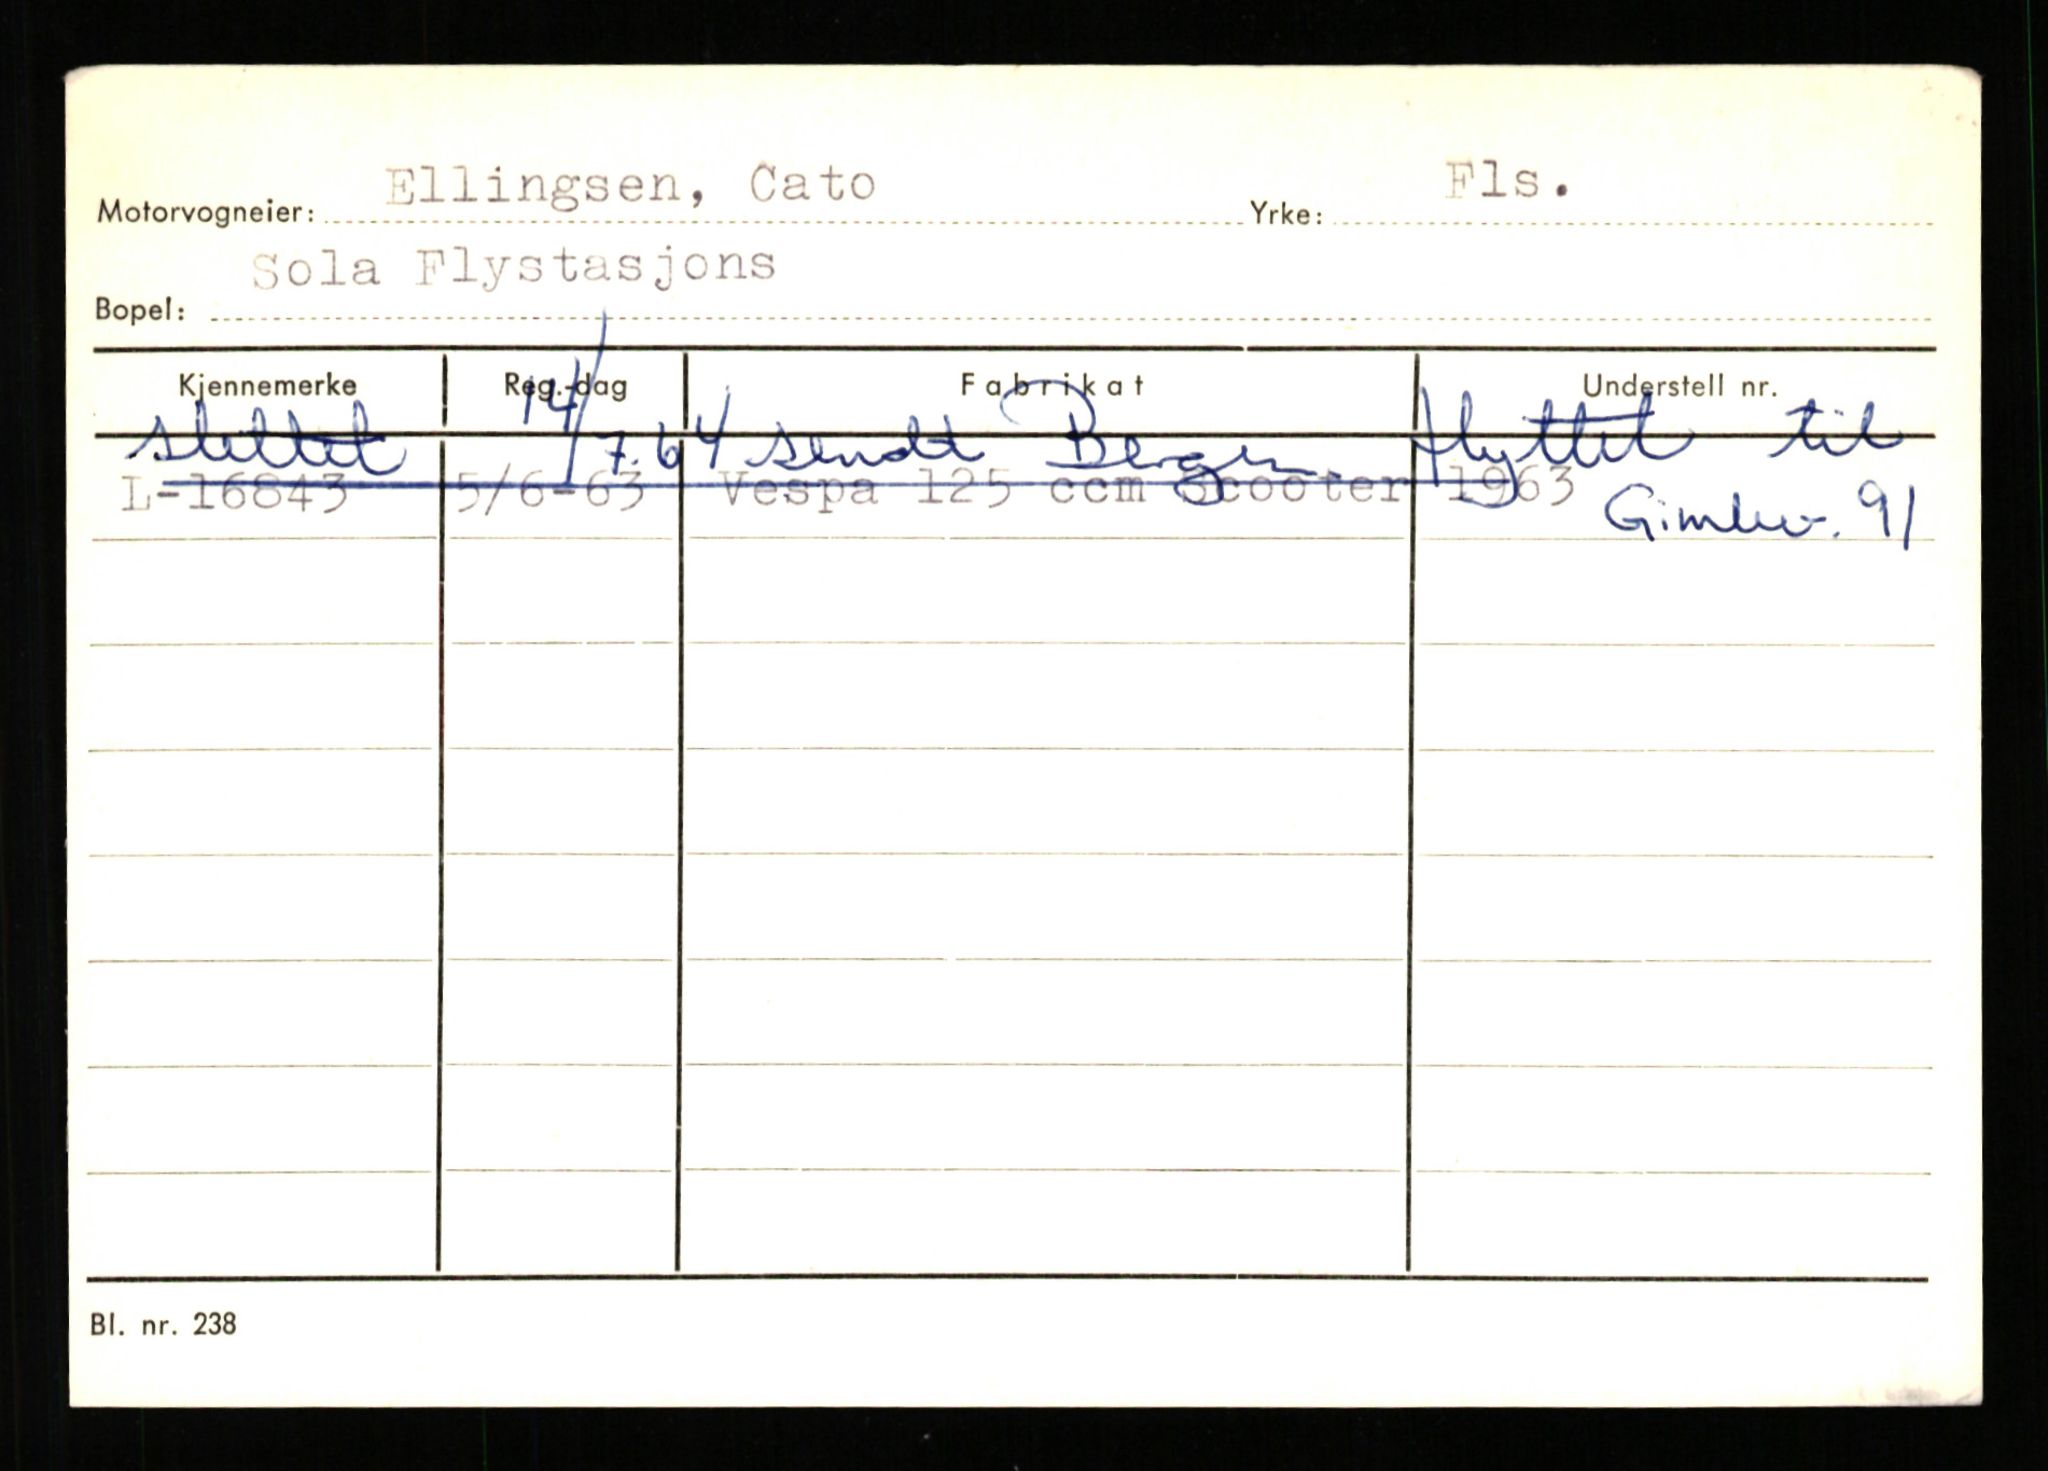 Motorvogneier: Ellingsen, Cato Yrke: Fls.
Bopel: Sola Flystasjons
Kjennemerke Reg.-dag Fabrikat Understell nr.
slettet 14/7.64 sendt Bergen. flyttet til
L-16843 5/6-63 Vespa 125 ccm Scooter 1963
91
Bl. nr. 238